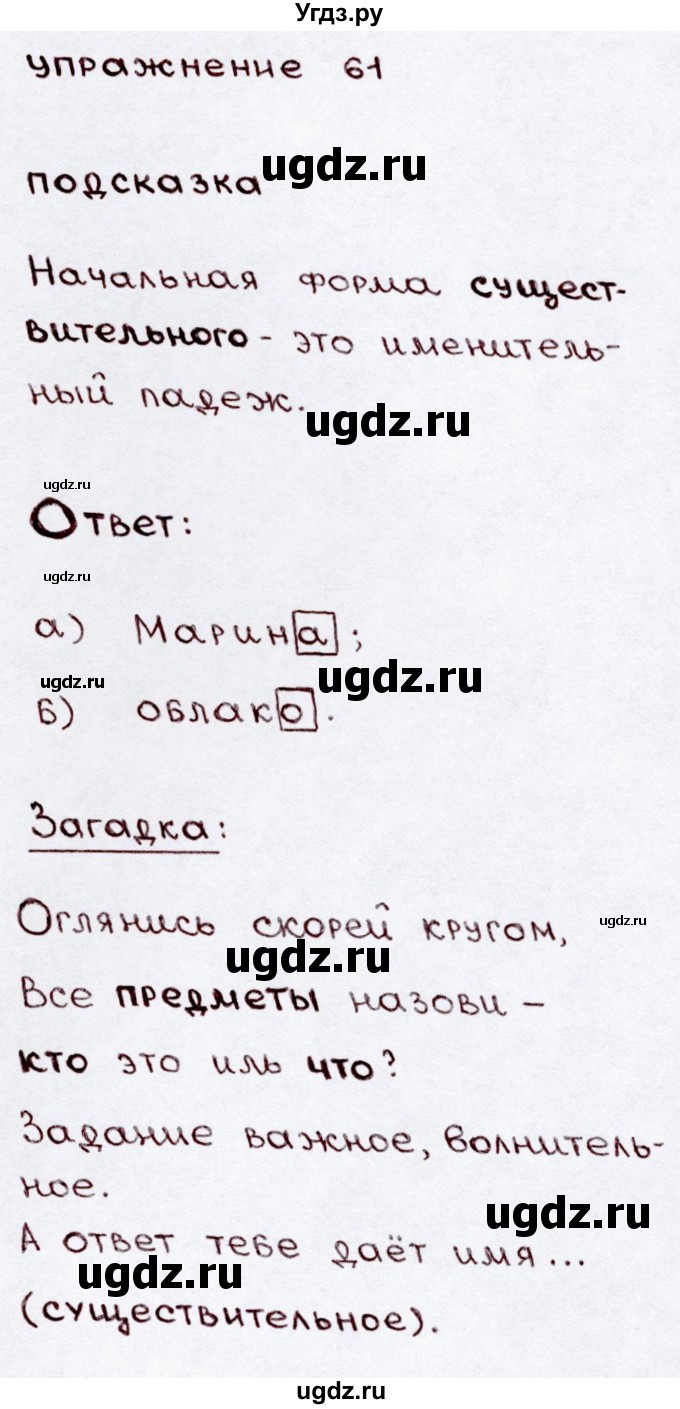 Угдз.ру
упражнение 61
ugdz.ru
подсказка
Начальная форма сущест-
вительного - это именитель-
ный падеж.
ugdz.ru
ugdz.ru
Ответ:
ugdz.ru
а) Марина;
ugdz.ru
ugdz.ru
б) облако.
Загадка:
Оглянись скорей кругом,
ugdz.ru
ugdz.ru
Все предметы назови -
кто это иль что?
Задание важное, волнитель-
ное.
ugdz.ru
А ответ тебе даёт имя...
ugdz.ru
(существительное).
ugdz.ru